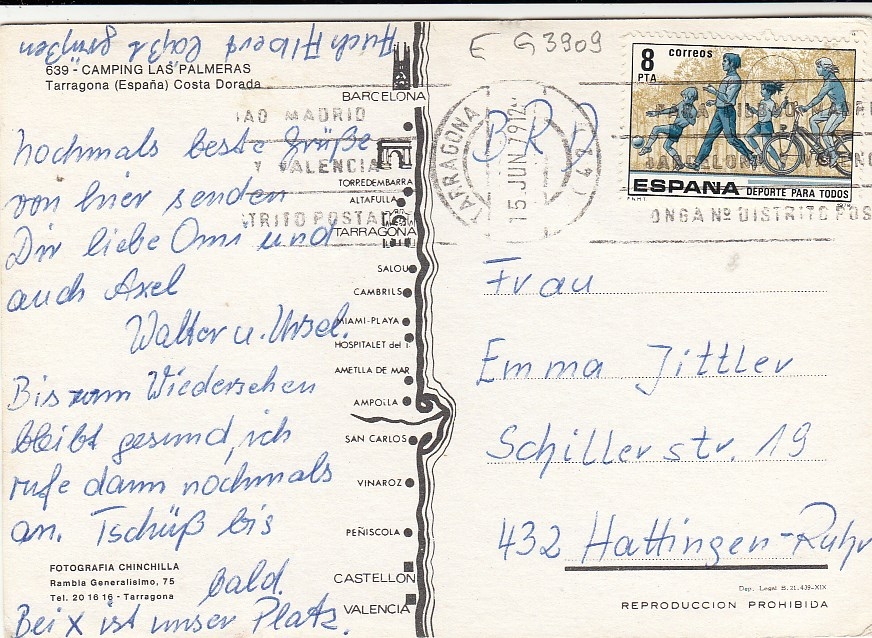 Auch Albert läßt grüßen
639 - CAMPING LAS PALMERAS
Tarragona (España) Costa Dorada
hochmals beste Grüße
von hier senden
Dir liebe Omi und
auch Axel
Walter u. Ursel.
Bis zum Wiedersehen
bleibt gesund, ich
rufe dann nochmals
an. Tschüß bis
bald.
Bei X ist unser Platz.
FOTOGRAFIA CHINCHILLA
Rambla Generalísimo, 75
Tel. 20 16 16 - Tarragona
BARCELONA
TORREDEMBARRA
ALTAFULLA
TARRAGONA
SALOU
CAMBRILS
MIAMI-PLAYA
HOSPITALET del I.
AMETLLA DE MAR
AMPOLLA
SAN CARLOS
VINAROZ
PEÑISCOLA
CASTELLON
VALENCIA
IAO MADRID
Y VALENCIA
TRITO POSTAL
TARRAGONA
15 JUN 79 12
E G 3909
BRD
8 correos
PTA
ESPAÑA DEPORTE PARA TODOS
BARCELONA Y VALENC
ONGA Nº DISTRITO POS
Frau
Emma Jittler
Schillerstr. 19
432 Hattingen-Ruhr
Dep. Legal B. 21.439-XIX
REPRODUCCION PROHIBIDA